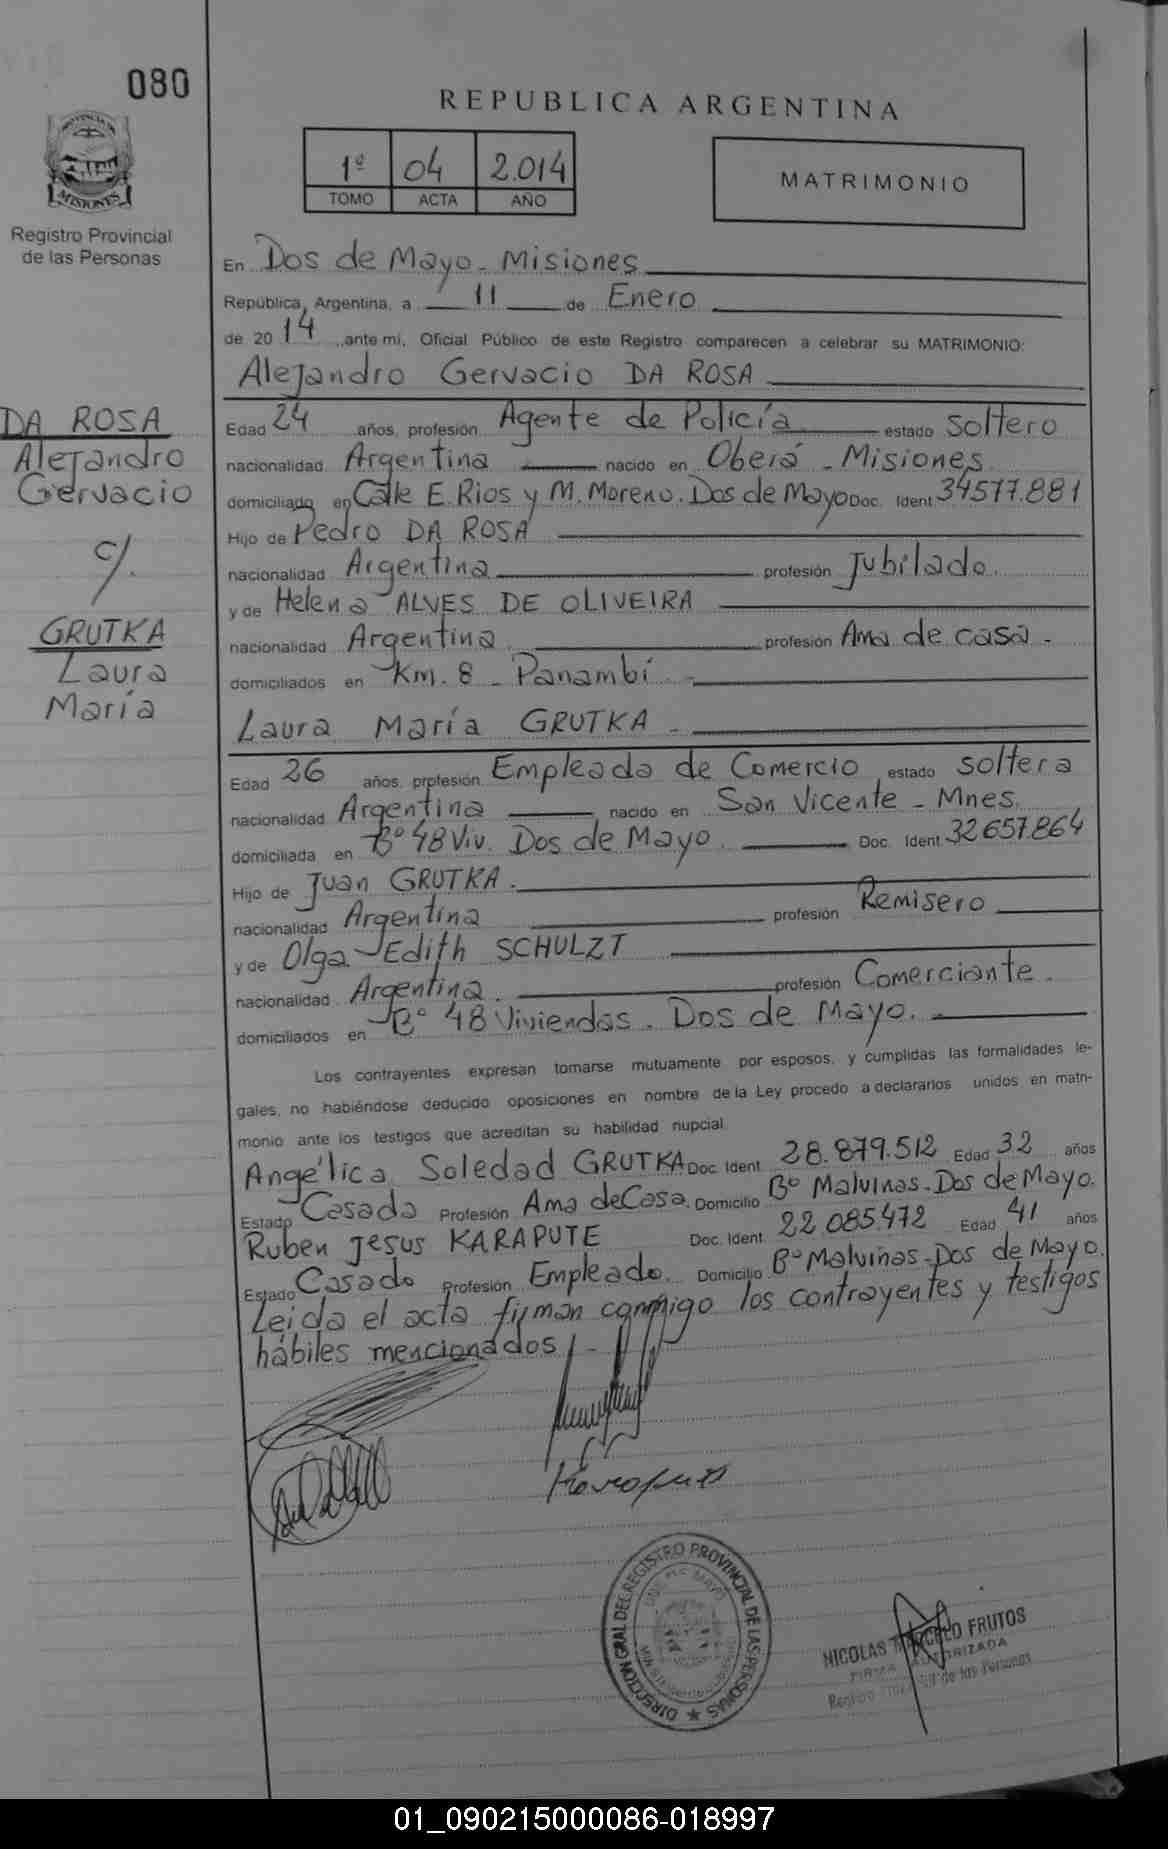 080
REPUBLICA ARGENTINA
1º 04 2.014
TOMO ACTA AÑO
MATRIMONIO
PROVINCIA DE
MISIONES
Registro Provincial
de las Personas
En Dos de Mayo - Misiones
República Argentina, a 11 de Enero
de 2014 ante mi, Oficial Público de este Registro comparecen a celebrar su MATRIMONIO:
Alejandro Gervacio DA ROSA
DA ROSA
Alejandro
Gervacio
c/.
GRUTKA
Laura
María
Edad 24 años, profesión Agente de Policía estado soltero
nacionalidad Argentina nacido en Oberá - Misiones
domiciliado en Calle E. Rios y M. Moreno. Dos de Mayo Doc. Ident 34577.881
Hijo de Pedro DA ROSA
nacionalidad Argentina profesión Jubilado.
y de Helena ALVES DE OLIVEIRA
nacionalidad Argentina profesión Ama de casa.
domiciliados en Km. 8 - Panambí -
Laura María GRUTKA -
Edad 26 años, profesión Empleada de Comercio estado soltera
nacionalidad Argentina nacido en San Vicente - Mnes.
domiciliada en Bº 48 Viv. Dos de Mayo. Doc. Ident 32657.864
Hijo de Juan GRUTKA.
nacionalidad Argentina profesión Remisero
y de Olga Edith SCHULZT
nacionalidad Argentina. profesión Comerciante.
domiciliados en Bº 48 Viviendas. Dos de Mayo.
Los contrayentes expresan tomarse mutuamente por esposos, y cumplidas las formalidades le-
gales, no habiéndose deducido oposiciones en nombre de la Ley procedo a declararlos unidos en matri-
monio ante los testigos que acreditan su habilidad nupcial
Angélica Soledad GRUTKA Doc. Ident. 28.879.512 Edad 32 años
Estado Casada Profesión Ama de Casa. Domicilio Bº Malvinas - Dos de Mayo.
Ruben Jesus KARAPUTE Doc. Ident. 22.085.472 Edad 41 años
Estado Casado Profesión Empleado. Domicilio Bº Malvinas - Dos de Mayo.
Leida el acta firman conmigo los contrayentes y testigos
hábiles mencionados.-
DIRECCION GRAL DEL REGISTRO PROVINCIAL DE LAS PERSONAS
DOS DE MAYO
NICOLAS MARCELO FRUTOS
FIRMA AUTORIZADA
Registro Provincial de las Personas
01_090215000086-018997